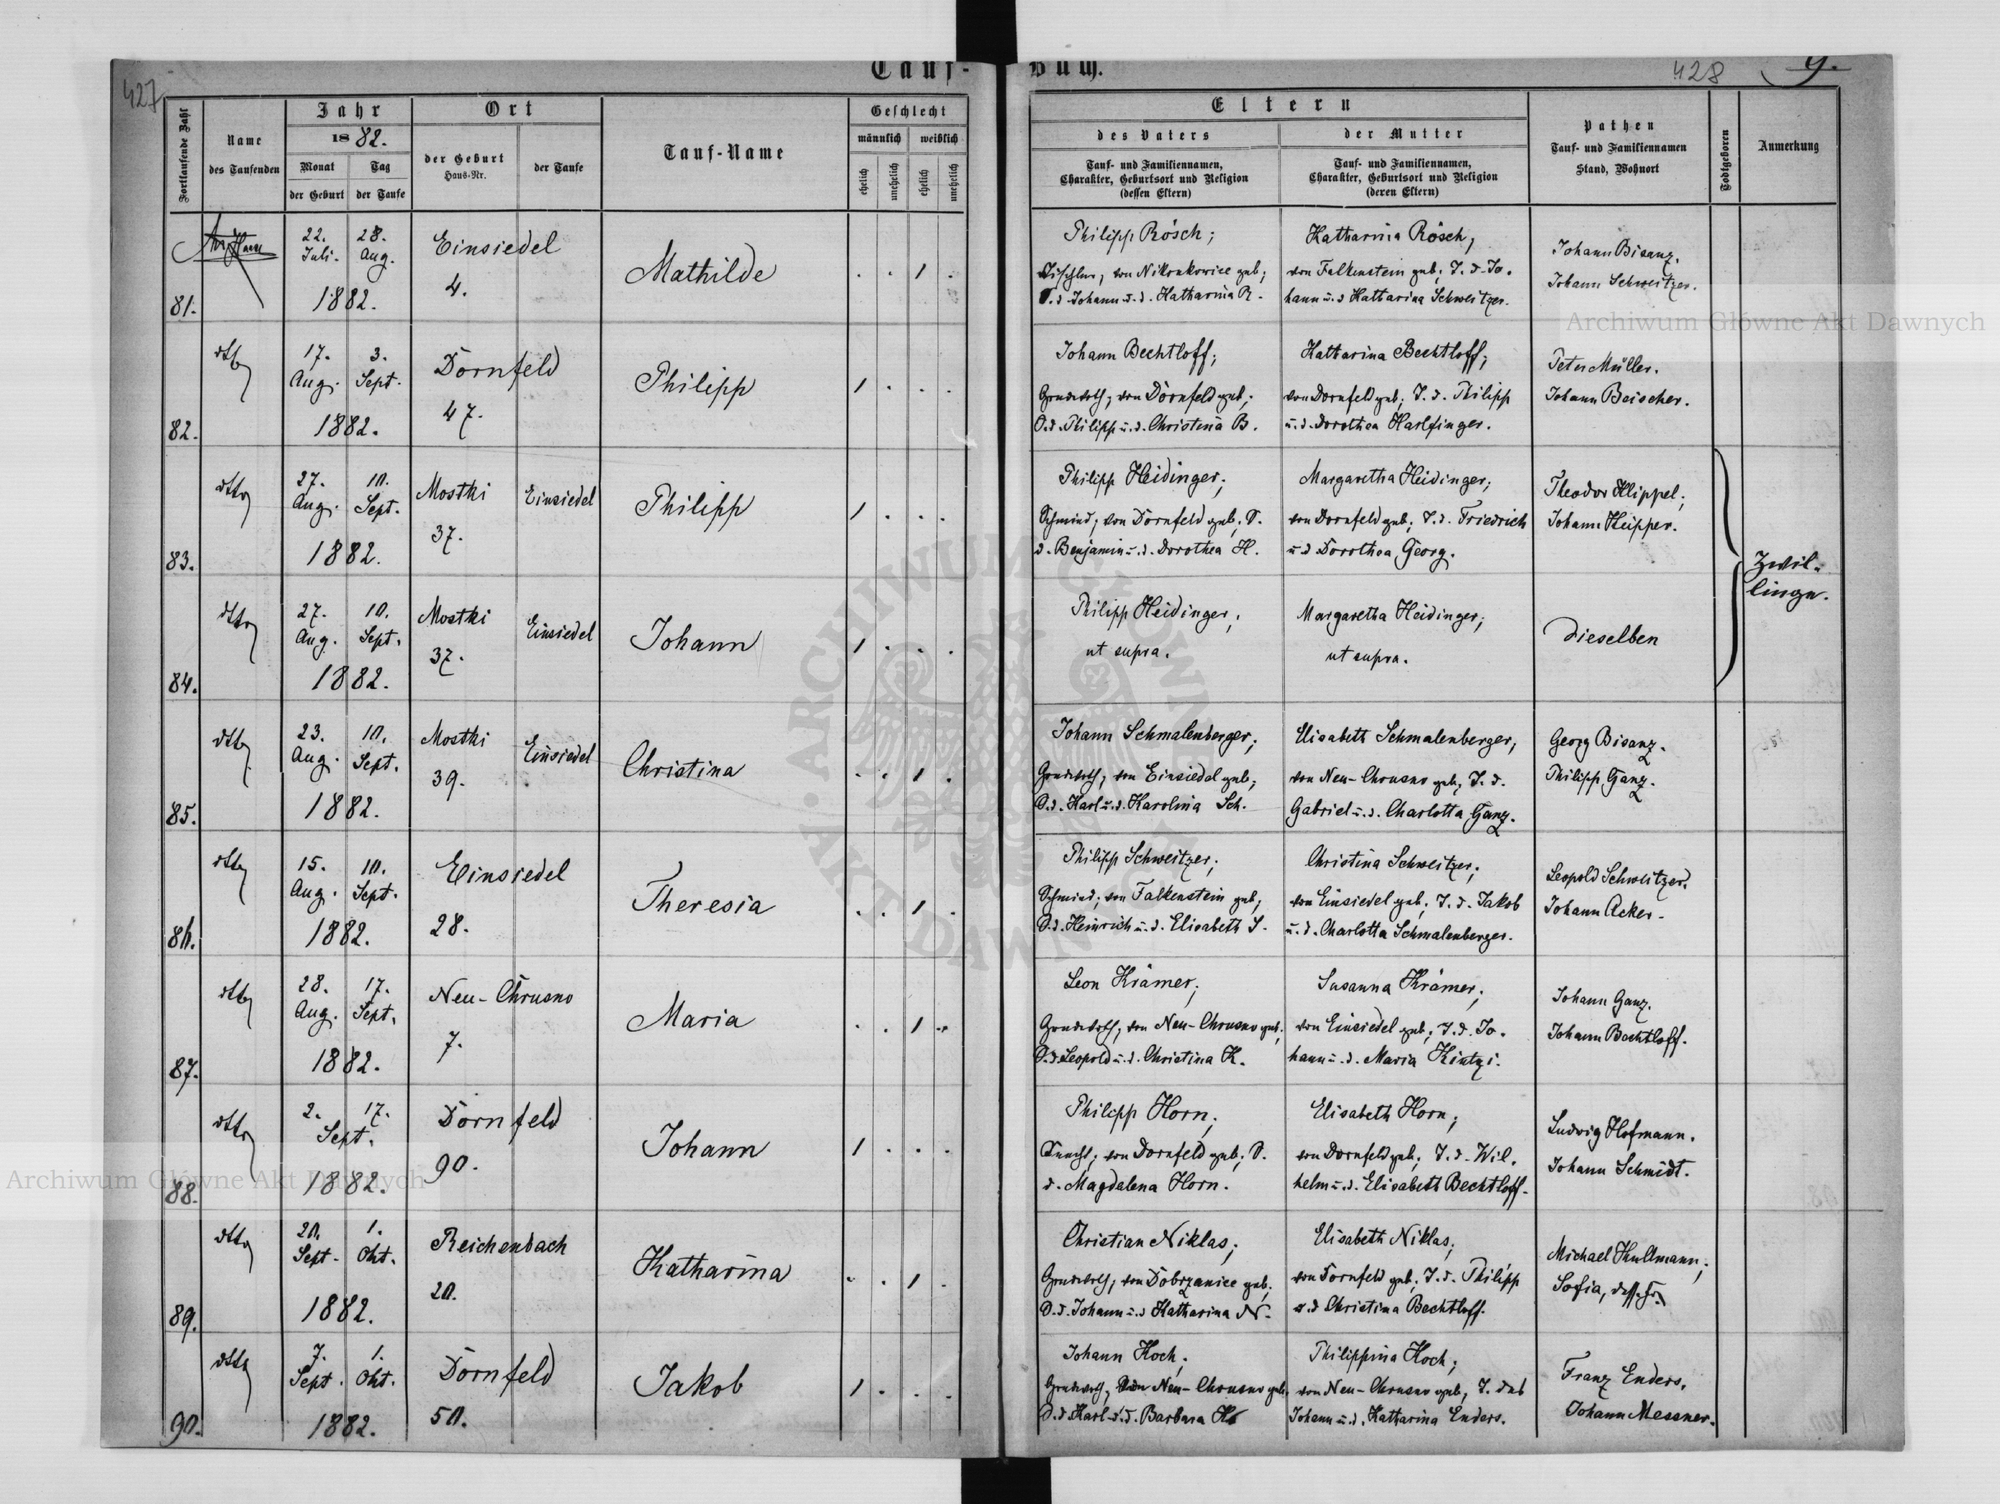 427
Tauf-
Buch.
428
9.
Fortlaufende Zahl
Name
des Taufenden
Jahr
1882.
Monat
der Geburt
Tag
der Taufe
Ort
der Geburt
Haus-Nr.
der Taufe
Tauf-Name
Geschlecht
männlich
weiblich
ehelich
unehelich
ehelich
unehelich
Eltern
des Vaters
Tauf- und Familiennamen,
Charakter, Geburtsort und Religion
(dessen Eltern)
der Mutter
Tauf- und Familiennamen,
Charakter, Geburtsort und Religion
(deren Eltern)
Pathen
Tauf- und Familiennamen
Stand, Wohnort
Todtgeboren
Anmerkung
81.
22. Juli.
28. Aug.
1882.
Einsiedel
4.
Mathilde
Philipp Rösch;
von Nikonkowice geb;
d. Johann u. d. Katharina R.
Katharina Rösch,
von Falkenstein geb; T. d. Jo-
hann u. d. Katharina Schweitzer.
Johann Bisanz.
Johann Schweitzer.
82.
dtto
17. Aug.
3. Sept.
1882.
Dornfeld
47.
Philipp
Johann Bechtloff;
Grundwrth, von Dornfeld geb;
S. d. Philipp u. d. Christina B.
Katharina Bechtloff;
von Dornfeld geb; T. d. Philipp
u. d. Dorothea Harlfinger.
Peter Müller.
Johann Beischer.
83.
dtto
27. Aug.
10. Sept.
1882.
Mostki
37.
Einsiedel
Philipp
Philipp Heidinger;
Schmied; von Dornfeld geb; S.
d. Benjamin u. d. Dorothea H.
Margaretha Heidinger;
von Dornfeld geb; T. d. Friedrich
u. d. Dorothea Georg.
Theodor Klippel;
Johann Keipper.
Zwil-
linge.
84.
dtto
27. Aug.
10. Sept.
1882.
Mostki
37.
Einsiedel
Johann
Philipp Heidinger;
ut supra.
Margaretha Heidinger;
ut supra.
Dieselben
85.
dtto
23. Aug.
10. Sept.
1882.
Mostki
39.
Einsiedel
Christina
Johann Schmalenberger;
Grundwrth, von Einsiedel geb;
S. d. Karl u. d. Karolina Sch.
Elisabeth Schmalenberger,
von Neu-Chrusno geb, T. d.
Gabriel u. d. Charlotta Ganz.
Georg Bisanz.
Philipp Ganz.
86.
dtto
15. Aug.
10. Sept.
1882.
Einsiedel
28.
Theresia
Philipp Schweitzer;
Schmied; von Falkenstein geb;
S. d. Heinrich u. d. Elisabeth S.
Christina Schweitzer;
von Einsiedel geb; T. d. Jakob
u. d. Charlotta Schmalenberger.
Leopold Schweitzer.
Johann Acker.
87.
dtto
28. Aug.
17. Sept.
1882.
Neu-Chrusno
7.
Maria
Leon Krämer;
Grundwrth, von Neu-Chrusno geb;
S. d. Leopold u. d. Christina K.
Susanna Krämer;
von Einsiedel geb; T. d. Jo-
hann u. d. Maria Kintzi.
Johann Ganz.
Johann Bechtloff.
88.
dtto
2. 17.
Sept.
1882.
Dornfeld
90.
Johann
Philipp Horn;
Knecht; von Dornfeld geb; S.
d. Magdalena Horn.
Elisabeth Horn;
von Dornfeld geb; T. d. Wil-
helm u. d. Elisabeth Bechtloff.
Ludwig Hofmann.
Johann Schmidt.
89.
dtto
20. Sept.
1. Okt.
1882.
Reichenbach
20.
Katharina
Christian Niklas;
Grundwrth, von Dobrzanice geb;
S. d. Johann u. d. Katharina N.
Elisabeth Niklas;
von Dornfeld geb; T. d. Philipp
u. d. Christina Bechtloff.
Michael Kullmann;
Sofia, dess. Fr.
90.
dtto
7. Sept.
1. Okt.
1882.
Dornfeld
50.
Jakob
Johann Koch;
Grundwrth, von Neu-Chrusno geb;
S. d. Karl u. d. Barbara K.
Philippina Koch;
von Neu-Chrusno geb, T. des
Johann u. d. Katharina Enders.
Franz Enders,
Johann Messner.
Archiwum Główne Akt Dawnych
Archiwum Główne Akt Dawnych